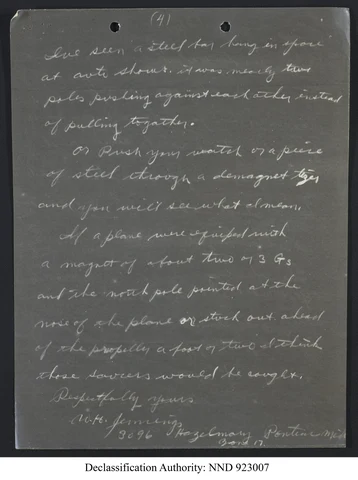 (4)
I've seen a steel bar hang in space
at auto shows. it was mearly two
poles pushing against each other instead
of pulling togather.
Or Push your watch or a peise
of steel through a demagnet
and you will see what I mean.
If a plane were equiped with
a magnet of about two or 3 Gs
and the north pole pointed at the
nose of the plane or stuck out ahead
of the propellr a foot or two I think
those saucers would be caught.
Respectfully yours
W.H. Jennings
3696 Pontiac Mich
Declassification Authority: NND 923007